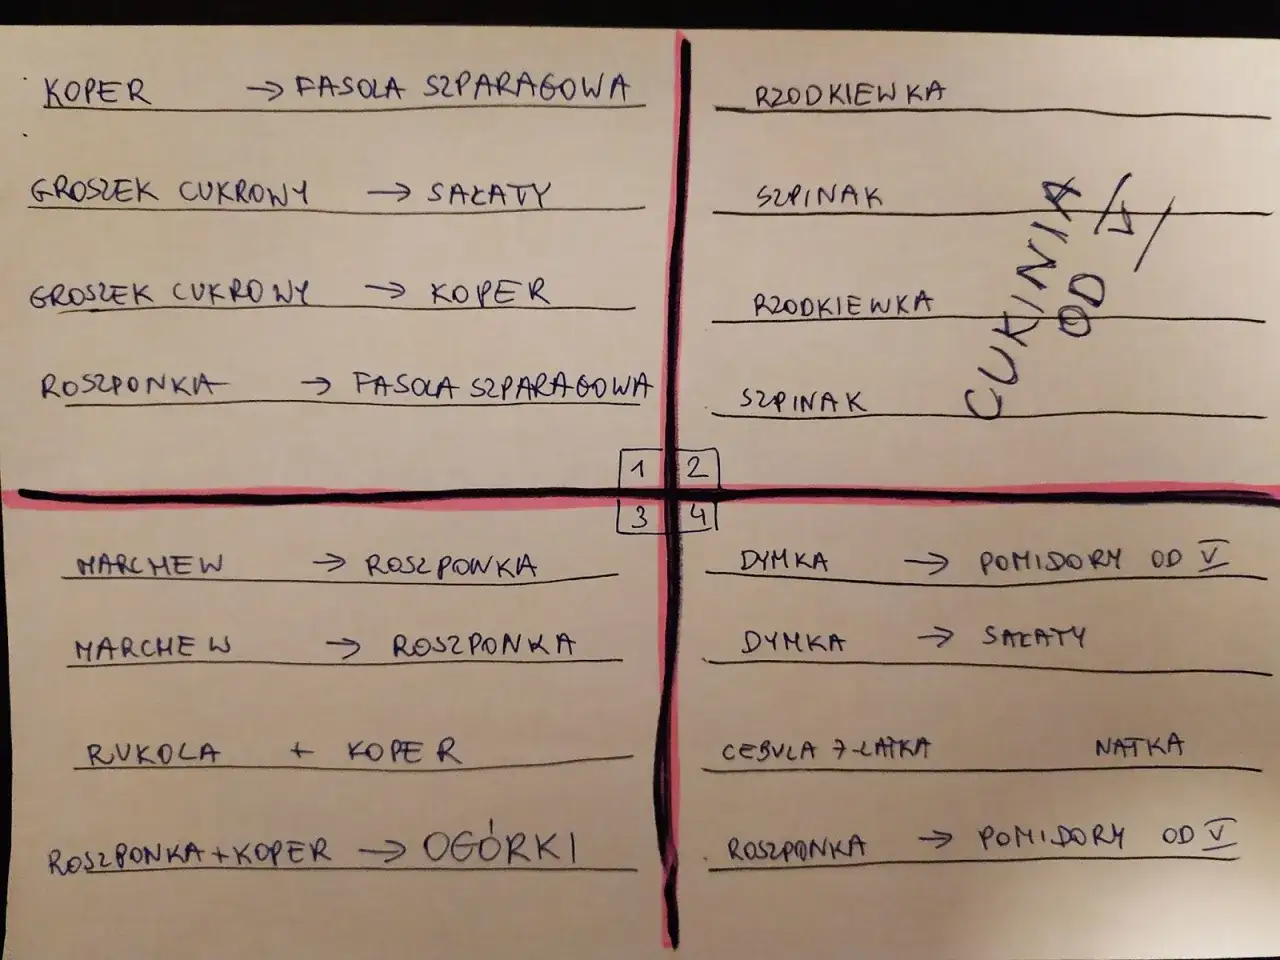 KOPER → FASOLA SZPARAGOWA
GROSZEK CUKROWY → SAŁATY
GROSZEK CUKROWY → KOPER
ROSZPONKA → FASOLA SZPARAGOWA
1
RZODKIEWKA
SZPINAK
RZODKIEWKA
SZPINAK
CUKINIA
OD V
2
MARCHEW → ROSZPONKA
MARCHEW → ROSZPONKA
RUKOLA + KOPER
ROSZPONKA + KOPER → OGÓRKI
3
DYMKA → POMIDORY OD V
DYMKA → SAŁATY
CEBULA 7-LATKA NATKA
ROSZPONKA → POMIDORY OD V
4